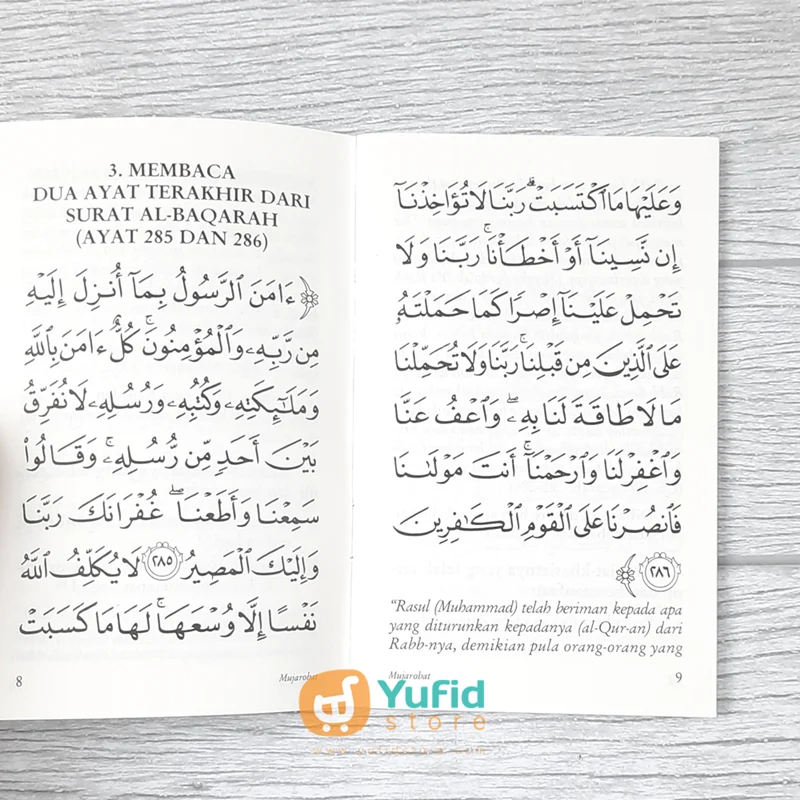 3. MEMBACA
DUA AYAT TERAKHIR DARI
SURAT AL-BAQARAH
(AYAT 285 DAN 286)
﴿ءَامَنَ ٱلرَّسُولُ بِمَآ أُنزِلَ إِلَيْهِ
مِن رَّبِّهِۦ وَٱلْمُؤْمِنُونَ ۚ كُلٌّ ءَامَنَ بِٱللَّهِ
وَمَلَـٰٓئِكَتِهِۦ وَكُتُبِهِۦ وَرُسُلِهِۦ لَا نُفَرِّقُ
بَيْنَ أَحَدٍ مِّن رُّسُلِهِۦ ۚ وَقَالُوا۟
سَمِعْنَا وَأَطَعْنَا ۖ غُفْرَانَكَ رَبَّنَا
وَإِلَيْكَ ٱلْمَصِيرُ ٢٨٥ لَا يُكَلِّفُ ٱللَّهُ
نَفْسًا إِلَّا وُسْعَهَا ۚ لَهَا مَا كَسَبَتْ
8
Mujarobat
وَعَلَيْهَا مَا ٱكْتَسَبَتْ ۗ رَبَّنَا لَا تُؤَاخِذْنَآ
إِن نَّسِينَآ أَوْ أَخْطَأْنَا ۚ رَبَّنَا وَلَا
تَحْمِلْ عَلَيْنَآ إِصْرًا كَمَا حَمَلْتَهُۥ
عَلَى ٱلَّذِينَ مِن قَبْلِنَا ۚ رَبَّنَا وَلَا تُحَمِّلْنَا
مَا لَا طَاقَةَ لَنَا بِهِۦ ۖ وَٱعْفُ عَنَّا
وَٱغْفِرْ لَنَا وَٱرْحَمْنَآ ۚ أَنتَ مَوْلَىٰنَا
فَٱنصُرْنَا عَلَى ٱلْقَوْمِ ٱلْكَـٰفِرِينَ
٢٨٦﴾
“Rasul (Muhammad) telah beriman kepada apa
yang diturunkan kepadanya (al-Qur-an) dari
Rabb-nya, demikian pula orang-orang yang
Mujarobat
9
Yufid
store